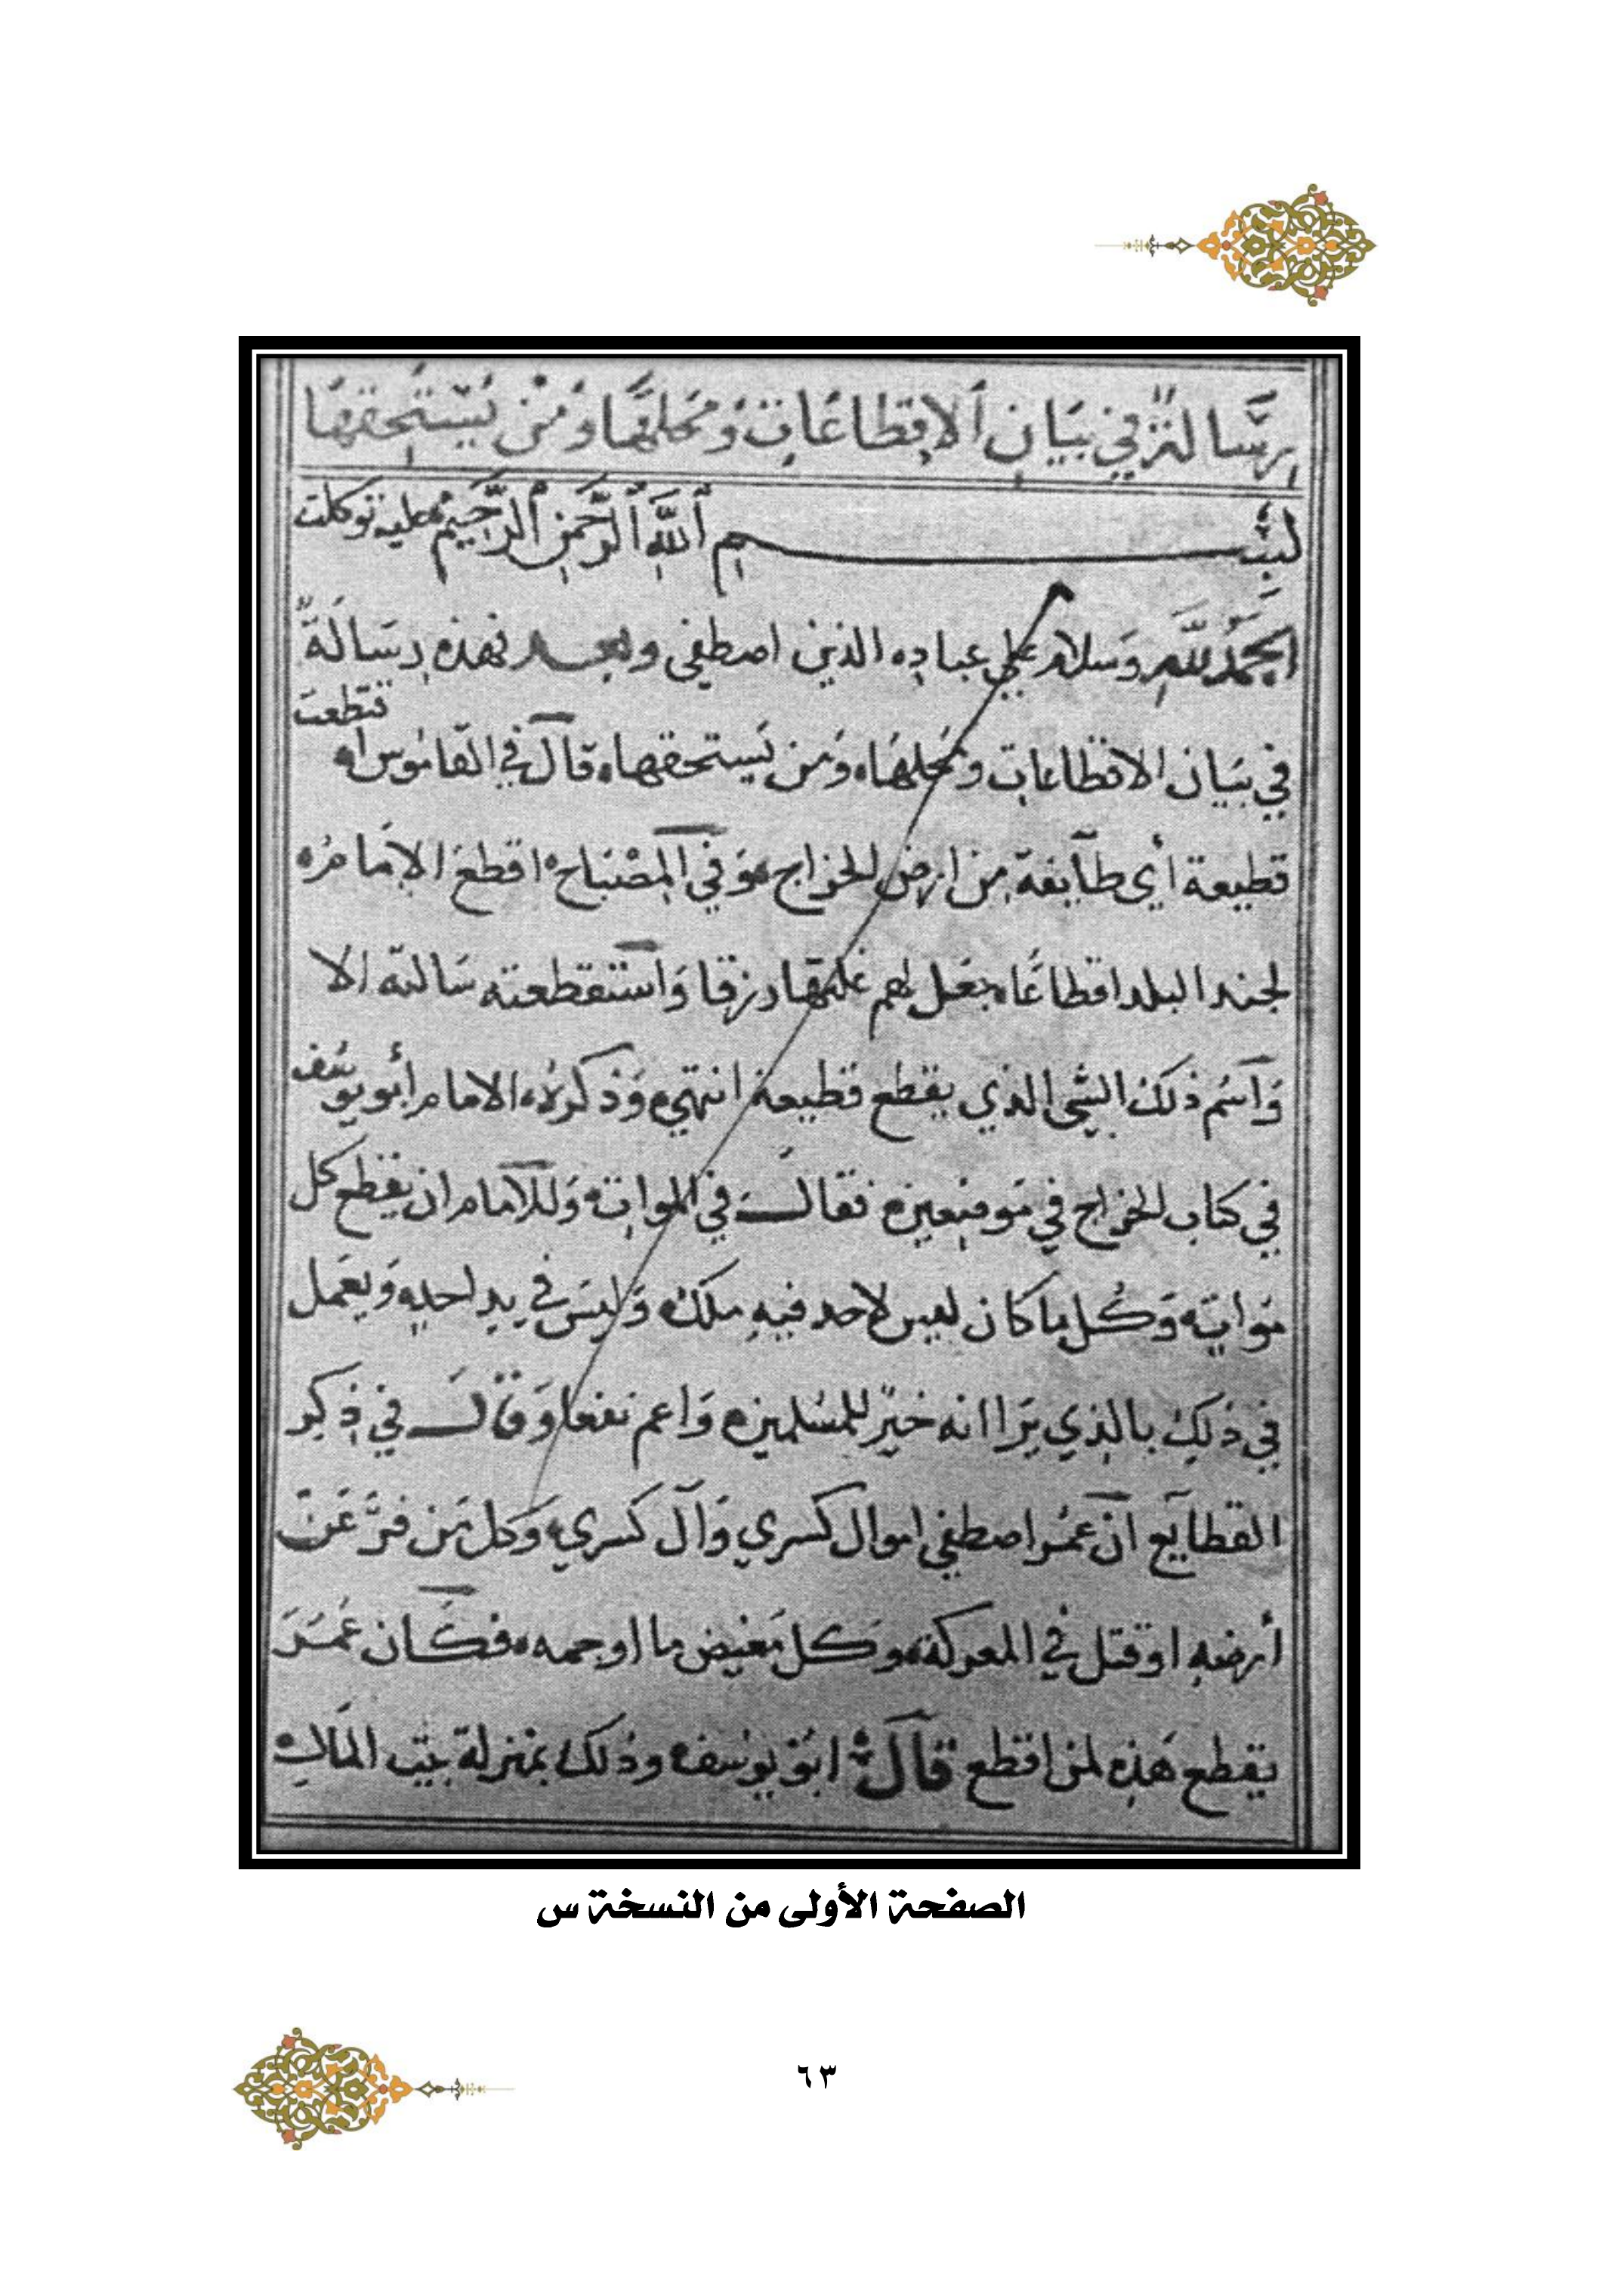 رسالة في بيان الاقطاعات ومحلها ومن يستحقها
بسم الله الرحمن الرحيم عليه توكلت
الحمد لله وسلام على عباده الذين اصطفى وبعد فهذه رسالة
في بيان الاقطاعات ومحلها ومن يستحقها قال في القاموس
قطيعة أي طايفة من ارض الخراج وفي المصباح اقطع الامام
لجند البلد اقطاعا جعل لهم غلتها رزقا واستقطعته سالته الا
واسم ذلك الشي الذي يقطع قطيعة انتهى وذكر الامام أبو يوسف
في كتاب الخراج في موضعين فقال في الموات وللامام ان يقطع كل
موات وكل ما كان ليس لاحد فيه ملك وليس في يد احد ويعمل
في ذلك بالذي يرا انه خير للمسلمين واعم نفعا وقال في ذكر
القطايع ان عمر اصطفى اموال كسري وآل كسري وكل من فر عن
أرضه او قتل في المعركة وكل مغيض ما او جمه فكان عمر
يقطع هذه لمن اقطع قال ابو يوسف وذلك بمنزلة بيت المال
الصفحة الأولى من النسخة س
٦٣